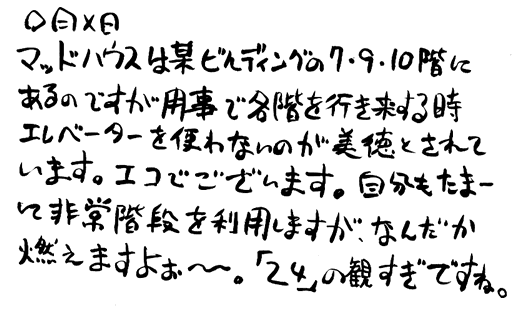 〇月×日
マッドハウスは某ビルディングの7・9・10階に
あるのですが用事で各階を行き来する時
エレベーターを使わないのが美徳とされて
います。エコでございます。自分もたまー
に非常階段を利用しますが、なんだか
燃えますよぉ〜〜。「24」の観すぎですね。